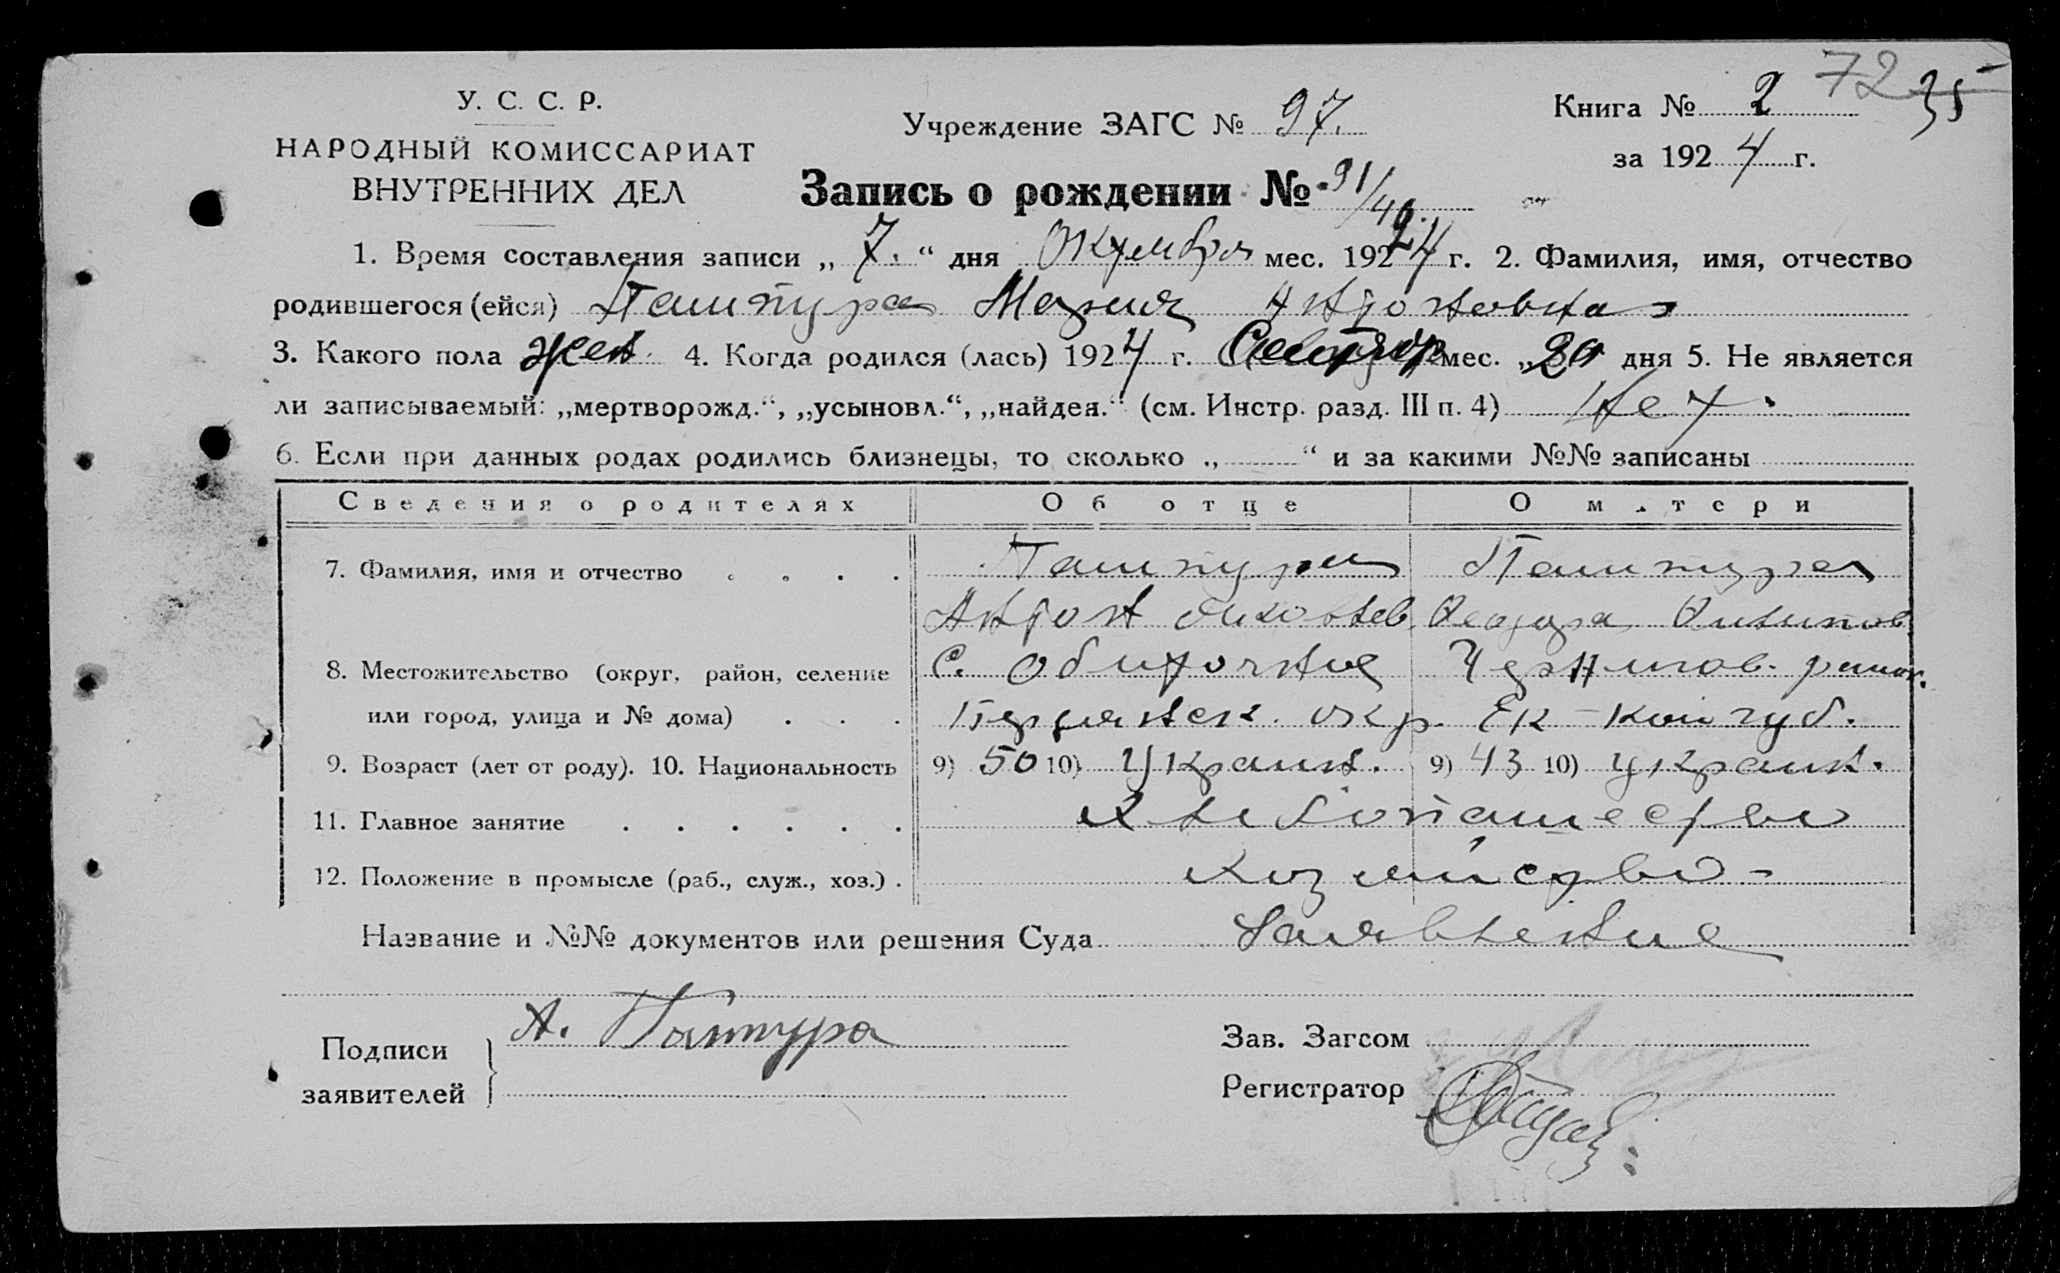 72 35
У. С. С. Р.
НАРОДНЫЙ КОМИССАРИАТ
ВНУТРЕННИХ ДЕЛ
Учреждение ЗАГС № 97.
Книга № 2
за 1924 г.
Запись о рождении № 91/49.
1. Время составления записи „ 7. “ дня Октября мес. 1924 г. 2. Фамилия, имя, отчество
родившегося (ейся) Паштура Мария Антоновна
3. Какого пола жен. 4. Когда родился (лась) 1924 г. Сентябр мес. „ 20 дня 5. Не является
ли записываемый: „мертворожд.“, „усыновл.“, „найден.“ (см. Инстр. разд. III п. 4) Нет.
6. Если при данных родах родились близнецы, то сколько „ “ и за какими №№ записаны
Сведения о родителях Об отце О матери
7. Фамилия, имя и отчество . . . . Паштура Паштура
Антон Феодора
8. Местожительство (округ, район, селение С. Обиточное Чернигов. район.
или город, улица и № дома) . . . Бердянск. окр. Ек-кой губ.
9. Возраст (лет от роду). 10. Национальность 9) 50 10) Украин. 9) 43 10) украин.
11. Главное занятие . . . . . . Хлебопашество
12. Положение в промысле (раб., служ., хоз.) . Хозяйство -
Название и №№ документов или решения Суда Заявление
Подписи
заявителей
А. Паштура
Зав. Загсом
Регистратор